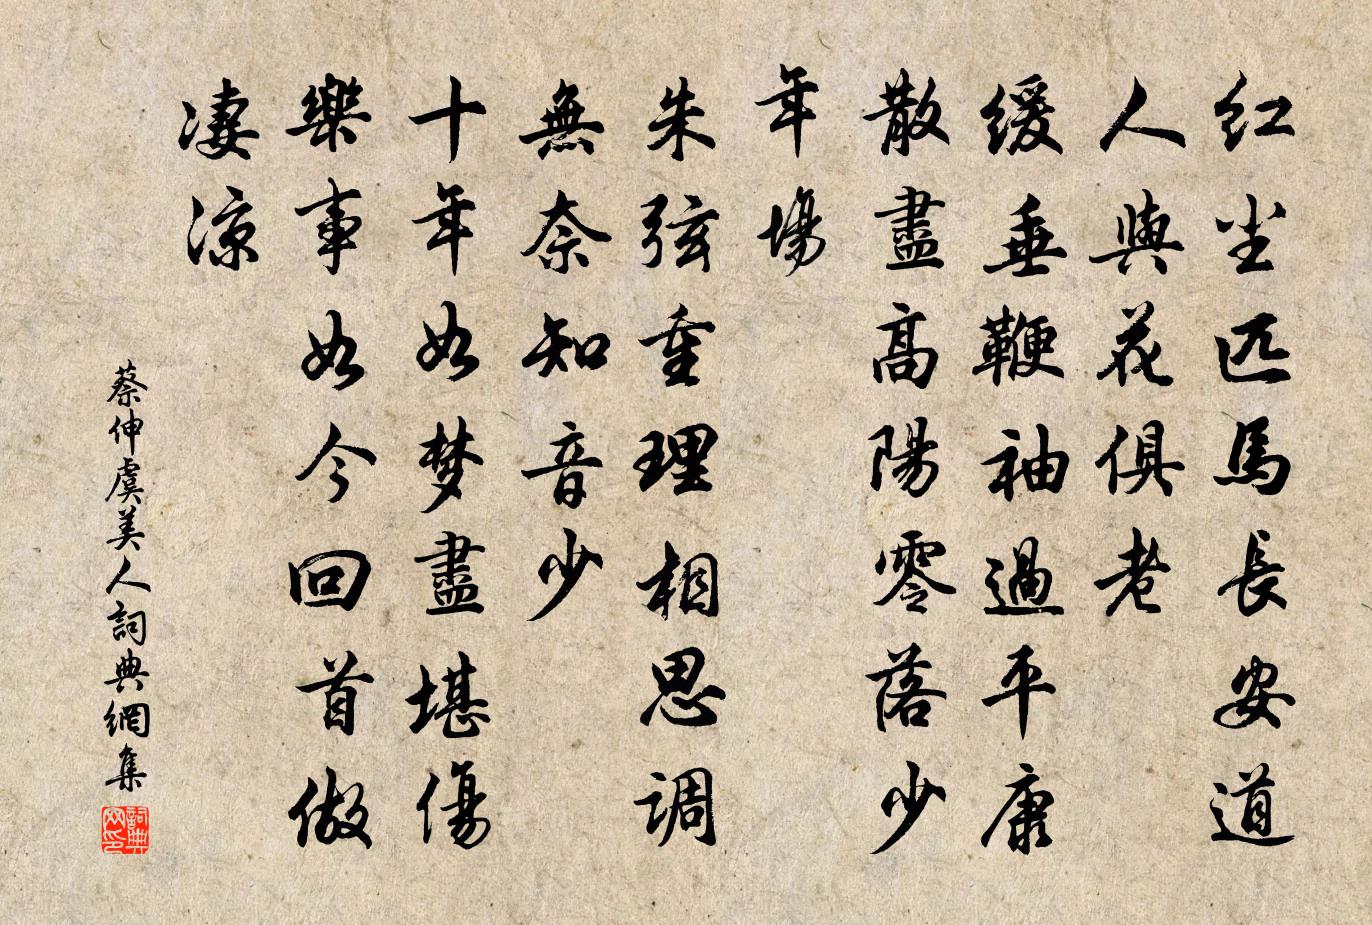 红尘匹馬長安道
人與花俱老
缓垂鞭袖過平康
散盡高陽零落少
年場
朱弦重理相思调
無奈知音少
十年如梦盡堪傷
樂事如今回首做
凄涼
蔡伸虞美人詞典網集
詞典网印